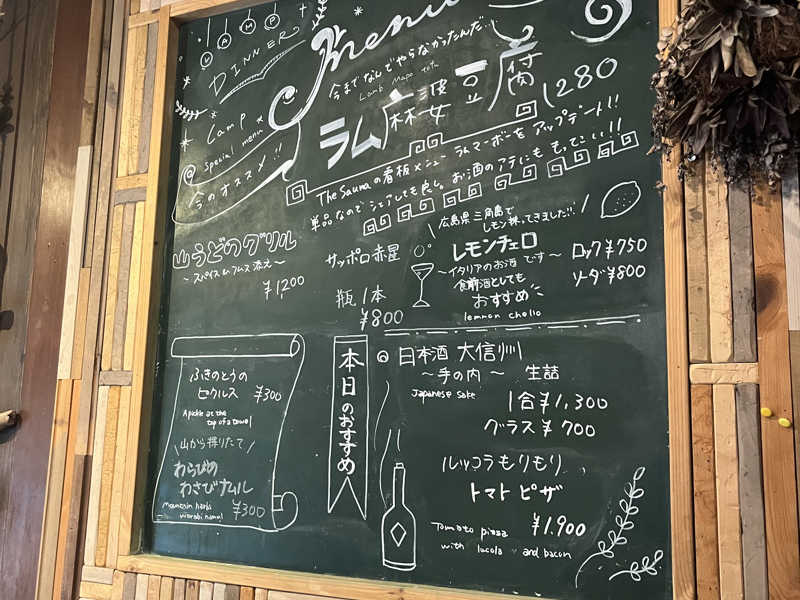 LAMP
DINNER
Menu
Lamp
special menu
今のオススメ!!
今までなんでやらなかったんだ…
Lamb Mapo tofu
ラム麻婆豆腐
1280
The Saunaの看板メニュー ラムマーボーをアップデート!!
単品なのでシェアしても良し。お酒のアテにももってこい!!
山うどのグリル
〜スパイス&フムス添え〜
¥1,200
サッポロ赤星
瓶1本
¥800
広島県三角島で
レモン採ってきました!!
レモンチェロ
〜イタリアのお酒です〜
食前酒としても
おすすめ
lemmon chello
ロック¥750
ソーダ¥800
ふきのとうの
ピクルス ¥300
A pickle at the
top of a towel
山から採りたて
わらびの
わさびナムル
mountain herbs
warabi namul
¥300
本日のおすすめ
日本酒 大信州
〜手の内〜 生詰
Japanese sake
1合¥1,300
グラス¥700
ルッコラもりもり
トマトピザ
¥1,900
Tomato pizza
with lucola and bacon